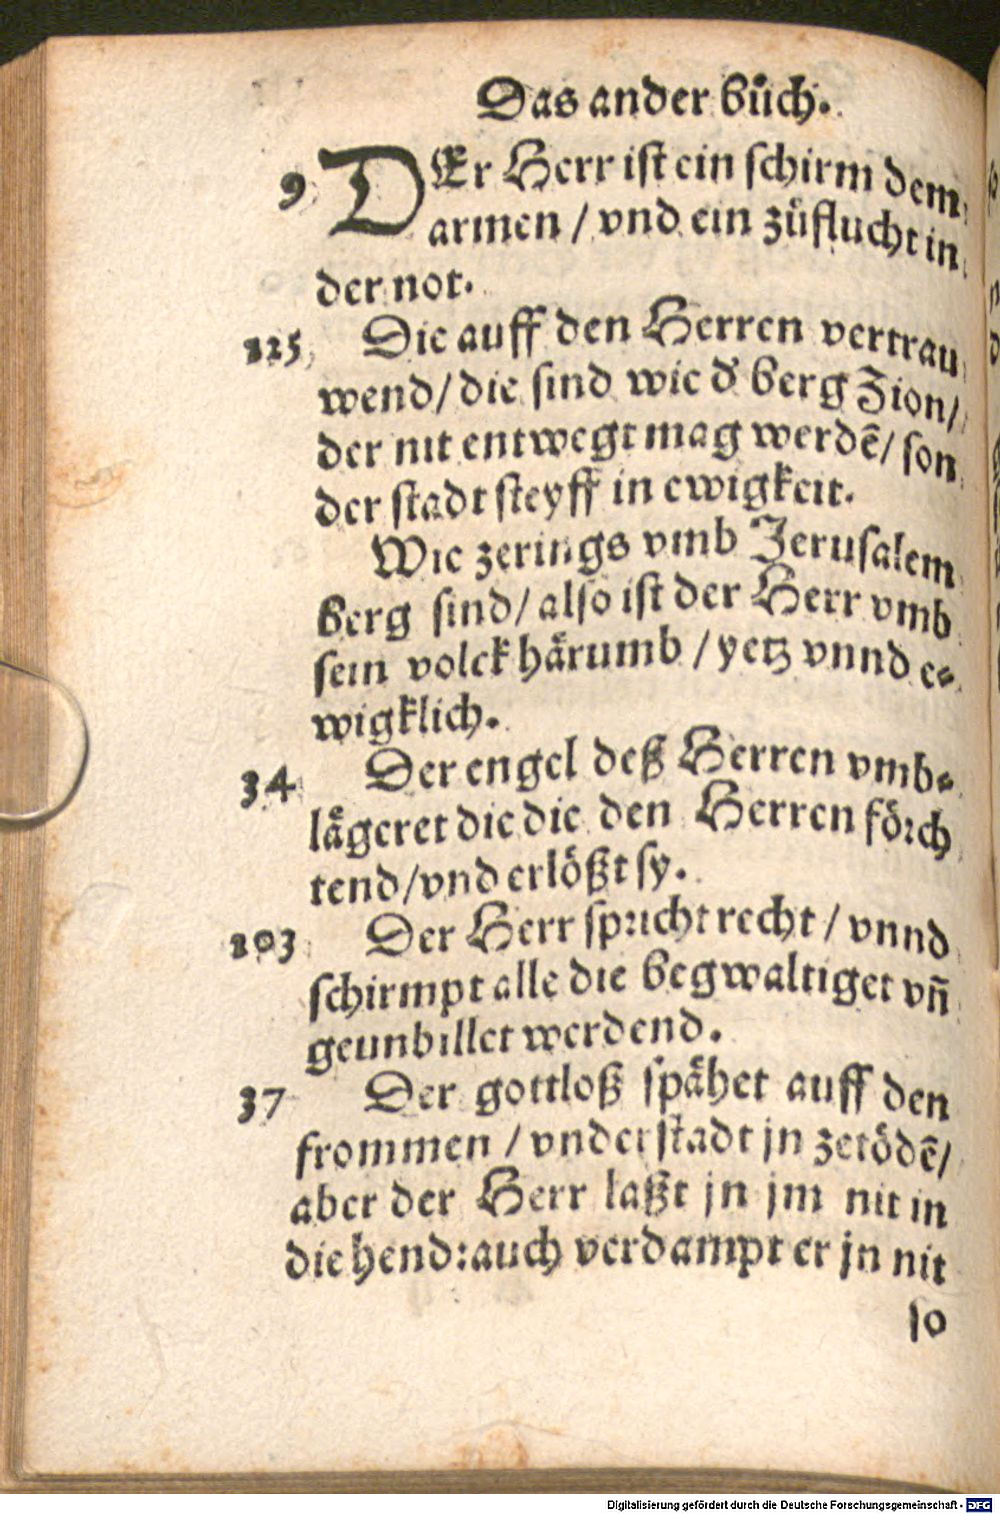 Das ander bůch.
9 DEr Herr ist ein schirm dem
armen / vnd ein zůflucht in
der not.
125 Die auff den Herren vertrau
wend / die sind wie d' berg Zion /
der nit entwegt mag werdē / son
der stadt steyff in ewigkeit.
Wie zerings vmb Jerusalem
berg sind / also ist der Herr vmb
sein volck härumb / yetz vnnd e-
wigklich.
34 Der engel deß Herren vmb-
lägeret die die den Herren förch
tend / vnd erlößt sy.
103 Der Herr spricht recht / vnnd
schirmpt alle die begwaltiget vñ
geunbillet werdend.
37 Der gottloß spähet auff den
frommen / vnderstadt jn zetödē /
aber der Herr laßt jn jm nit in
die hend: auch verdampt er jn nit
so
Digitalisierung gefördert durch die Deutsche Forschungsgemeinschaft - DFG